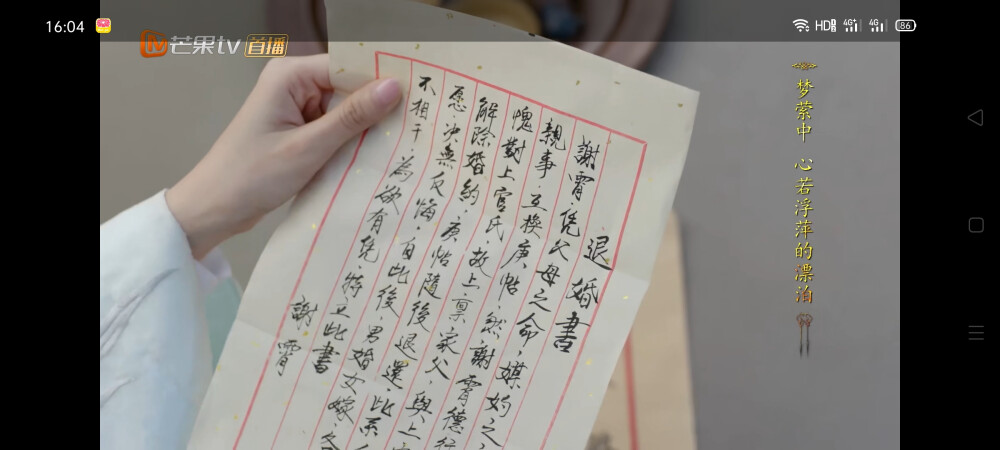 16:04
HD 4G+ 4G 86
芒果tv 首播
退婚書
謝霄，凭父母之命，媒妁之
親事，互換庚帖，然謝霄德行
愧對上官氏，故上禀家父，與上官
解除婚約，庚帖隨後退還，此系
愿，决無反悔，自此後，男婚女嫁，各
不相干，為欲有凭，特立此書
謝霄
梦萦中 心若浮萍的漂泊